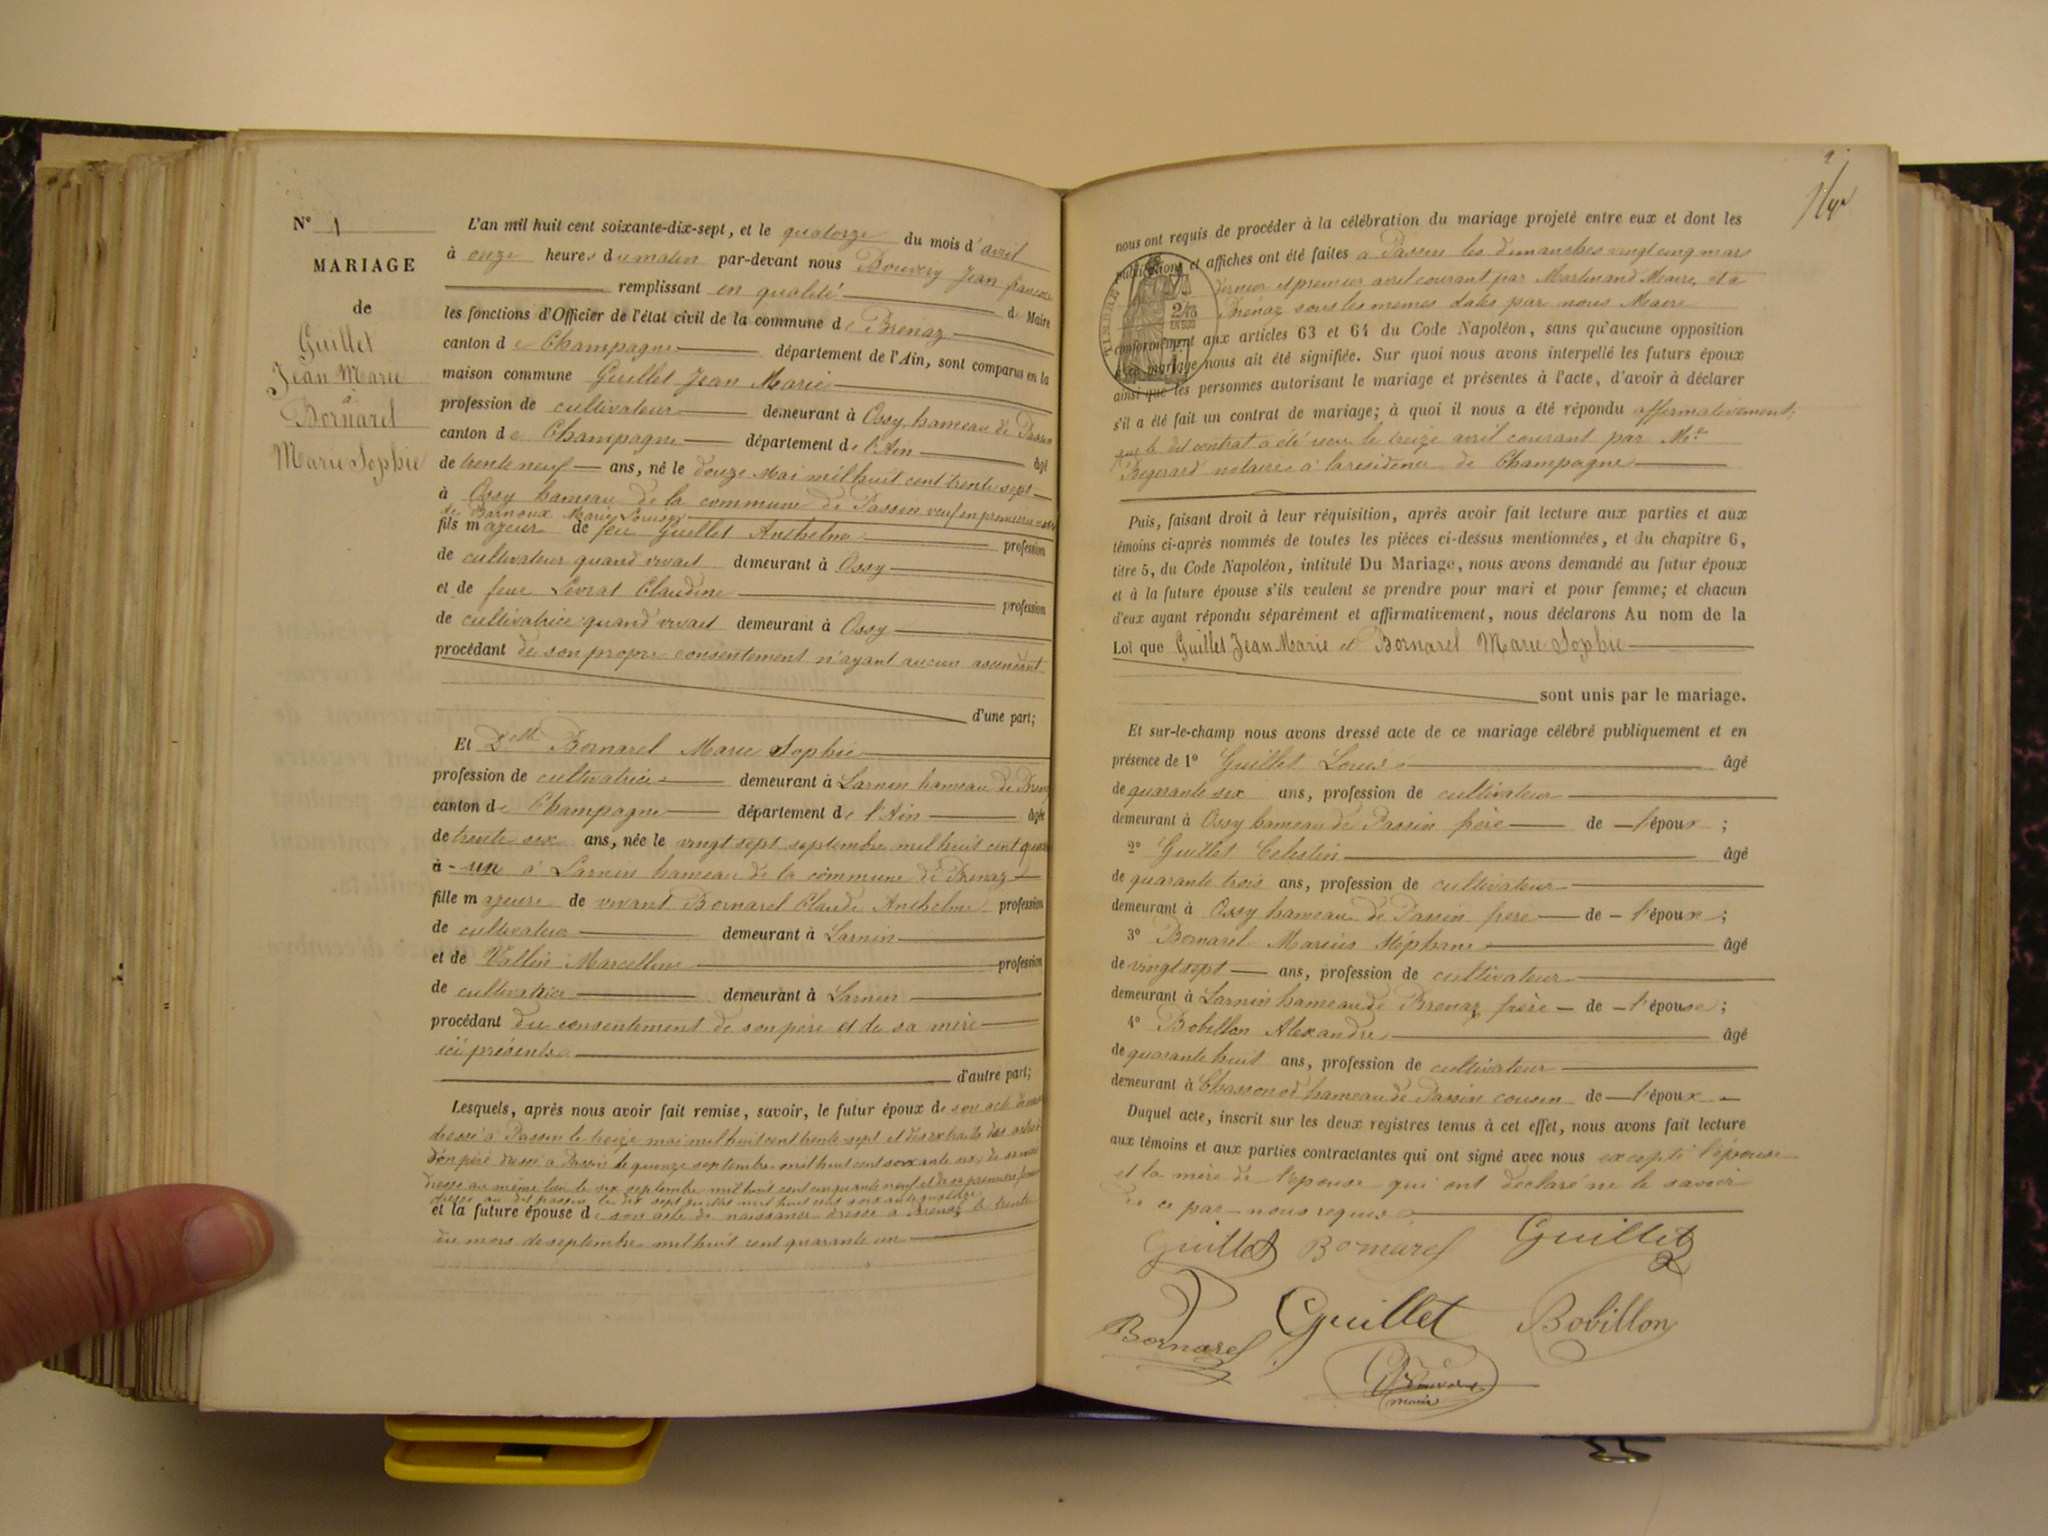 N° 1
MARIAGE
de
Guillet
Jean Marie
à
Bornarel
Marie Sophie
L'an mil huit cent soixante-dix-sept, et le quatorze du mois d'avril
à onze heures du matin par-devant nous Bouvery Jean françois
remplissant en qualité de Maire
les fonctions d'Officier de l'état civil de la commune de Brénaz
canton de Champagne département de l'Ain, sont comparus en la
maison commune Guillet Jean Marie
profession de cultivateur demeurant à Ossy, hameau de Passin
canton de Champagne département de l'Ain âgé
de trente neuf ans, né le douze Mai mil huit cent trente sept
à Ossy hameau de la commune de Passin veuf en premières
de Marie Louise
fils majeur de feu Guillet Anthelme profession
de cultivateur quand vivait demeurant à Ossy
et de feue Levrat Claudine profession
de cultivatrice quand vivait demeurant à Ossy
procédant de son propre consentement n'ayant aucun ascendant
d'une part;
Et Delle Bornarel Marie Sophie
profession de cultivatrice demeurant à Larnin hameau de Brenaz
canton de Champagne département de l'Ain âgée
de trente six ans, née le vingt sept septembre mil huit cent quarante
à - un à Larnin hameau de la commune de Brenaz
fille majeure de vivant Bornarel Claude Anthelme profession
de cultivateur demeurant à Larnin
et de Vallin Marcelline profession
de cultivatrice demeurant à Larnin
procédant du consentement de son père et de sa mère
ici présents
d'autre part;
Lesquels, après nous avoir fait remise, savoir, le futur époux de son acte de
dressé à Passin le treize mai mil huit cent trente sept et des extraits des actes
père dressé à Passin le quinze septembre mil huit cent soixante
dressé au même lieu le six septembre mil huit cent cinquante neuf et de sa première femme
dressé au dit Passin le dix sept mil huit cent soixante
et la future épouse de son acte de naissance dressé à Brénaz le trente
du mois de septembre mil huit cent quarante un
nous ont requis de procéder à la célébration du mariage projeté entre eux et dont les
publications et affiches ont été faites à Passin les dimanches vingt cinq mars
dernier et premier avril courant par Martinand Maire, et à
Brénaz sous les mêmes dates par nous Maire
TIMBRE
EN SUS
conformément aux articles 63 et 64 du Code Napoléon, sans qu'aucune opposition
à ce mariage nous ait été signifiée. Sur quoi nous avons interpellé les futurs époux
ainsi que les personnes autorisant le mariage et présentes à l'acte, d'avoir à déclarer
s'il a été fait un contrat de mariage; à quoi il nous a été répondu affirmativement,
que le dit contrat a été reçu le treize avril courant par Me
notaire à la résidence de Champagne
Puis, faisant droit à leur réquisition, après avoir fait lecture aux parties et aux
témoins ci-après nommés de toutes les pièces ci-dessus mentionnées, et du chapitre 6,
titre 5, du Code Napoléon, intitulé Du Mariage, nous avons demandé au futur époux
et à la future épouse s'ils veulent se prendre pour mari et pour femme; et chacun
d'eux ayant répondu séparément et affirmativement, nous déclarons Au nom de la
Loi que Guillet Jean Marie et Bornarel Marie Sophie
sont unis par le mariage.
Et sur-le-champ nous avons dressé acte de ce mariage célébré publiquement et en
présence de 1° Guillet Louis âgé
de quarante six ans, profession de cultivateur
demeurant à Ossy hameau de Passin frère de l'époux;
2° Guillet Célestin âgé
de quarante trois ans, profession de cultivateur
demeurant à Ossy hameau de Passin frère de l'époux;
3° Bornarel Marius Stéphane âgé
de vingt sept ans, profession de cultivateur
demeurant à Larnin hameau de Brenaz frère de l'épouse;
4° Bobillon Alexandre âgé
de quarante huit ans, profession de cultivateur
demeurant à Chassonod hameau de Passin cousin de l'époux
Duquel acte, inscrit sur les deux registres tenus à cet effet, nous avons fait lecture
aux témoins et aux parties contractantes qui ont signé avec nous excepté l'épouse
et la mère de l'épouse qui ont déclaré ne le savoir
de ce par nous requis
Guillet Bornarel Guillet
Bornarel Guillet Bobillon
Bouvery
maire